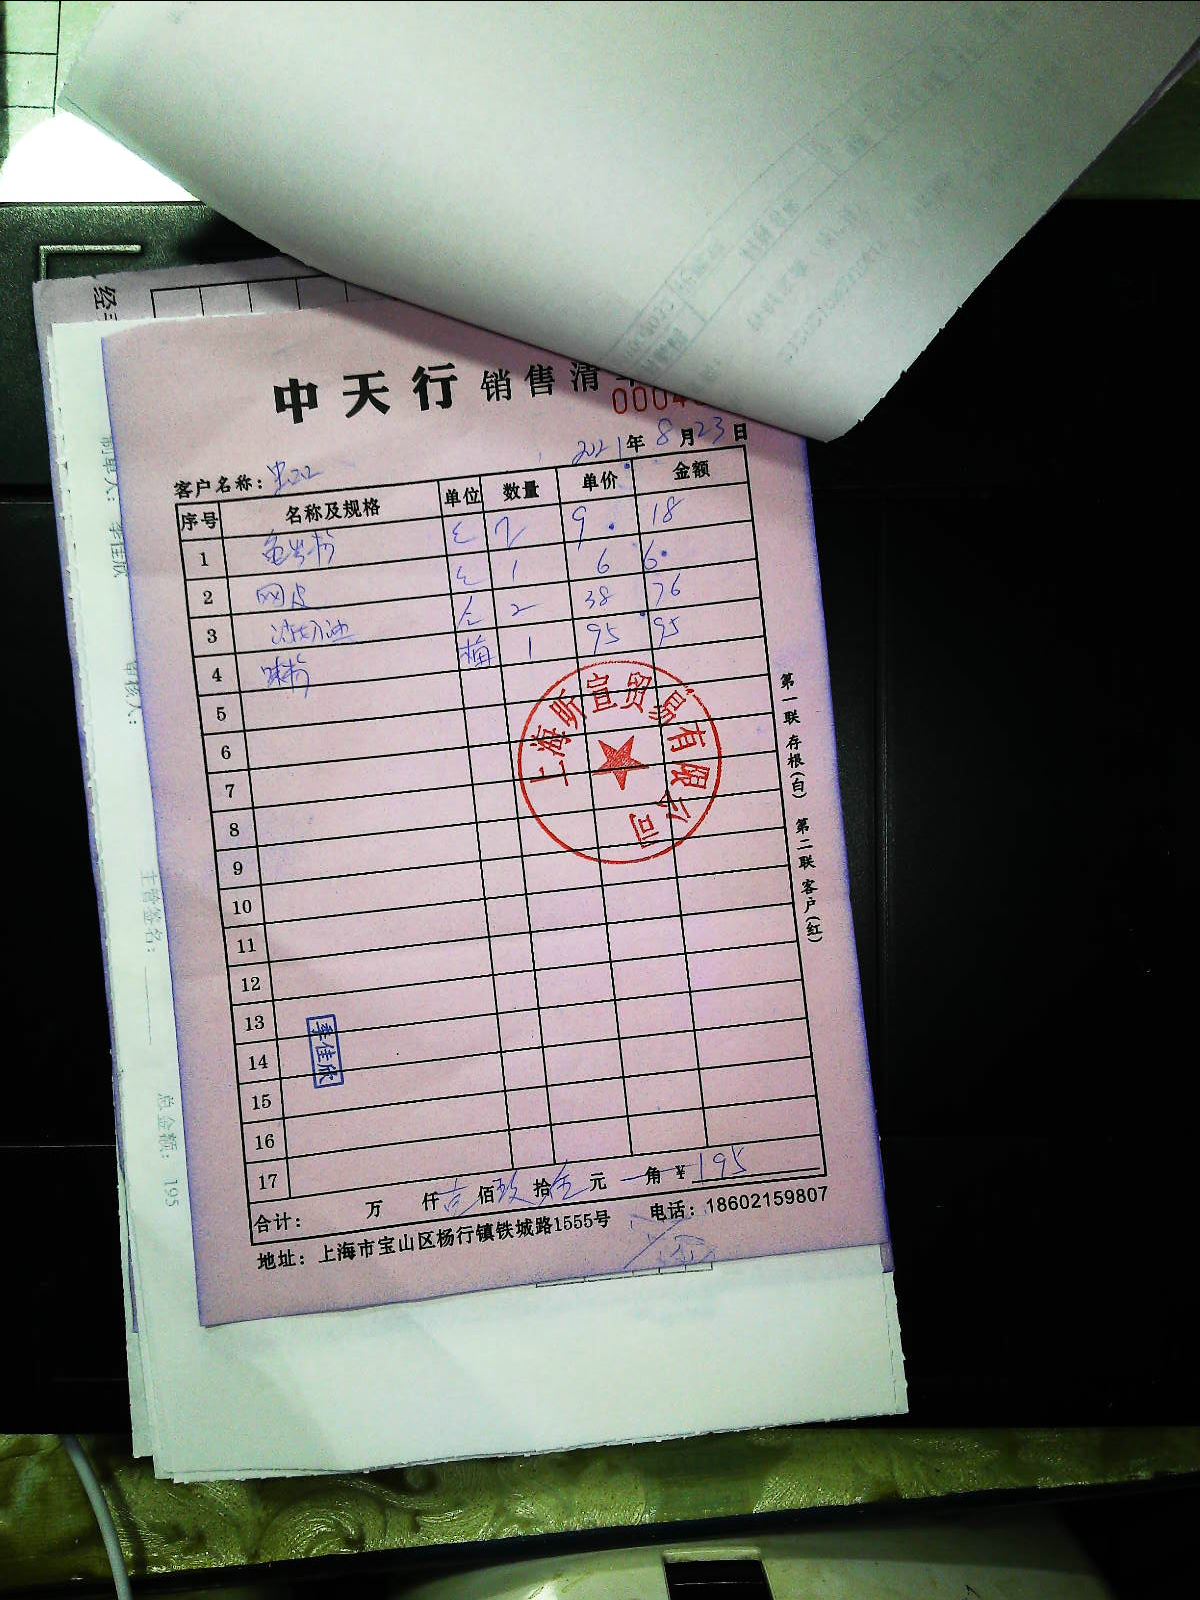 中天行 销售清
2021年8月23日
客户名称：
序号 名称及规格 单位 数量 单价 金额
1 2 9 18
2 网皮 1 6 6
3 2 38 76
4 味粉 箱 1 95 95
5
6
7
8
9
10
11
12
13
14
15
16
17
上海昕宣贸易有限公司
李佳欣
合计： 万 仟 壹佰玖拾 元 角 ¥195
地址：上海市宝山区杨行镇铁城路1555号 电话：18602159807
第一联 存根(白) 第二联 客户(红)
制单人：李佳欣
审核人：
主管签名：
总金额：195